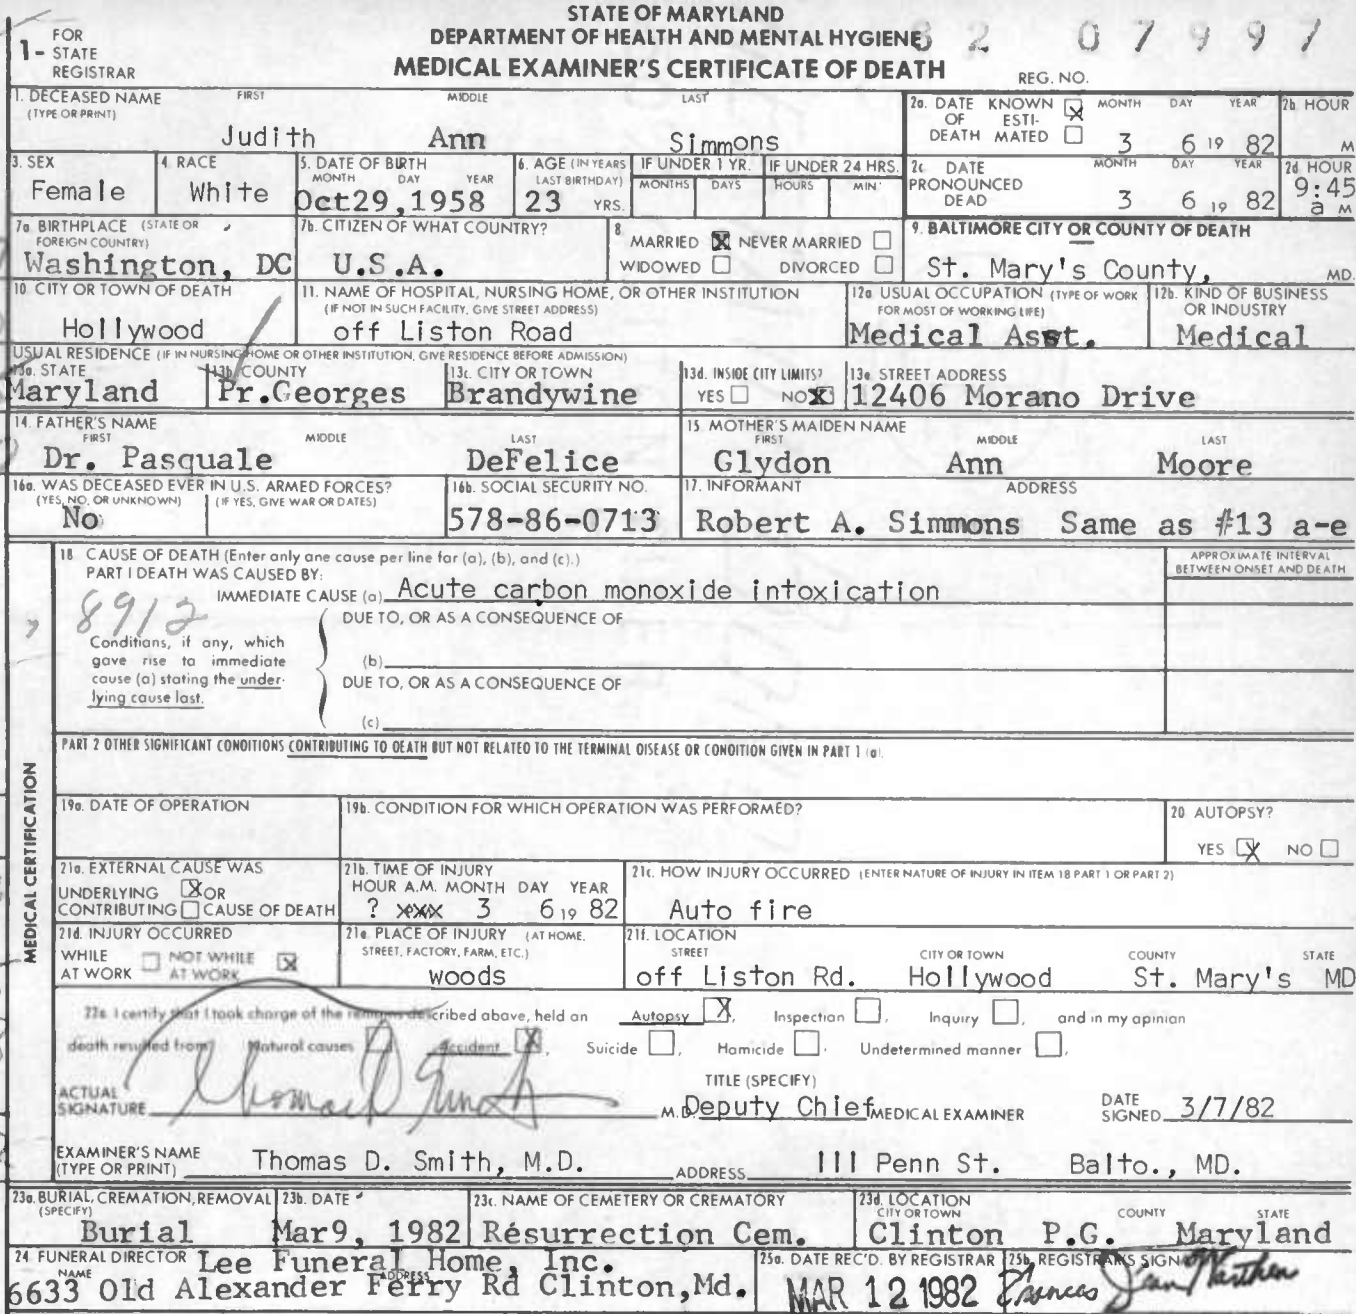 STATE OF MARYLAND
DEPARTMENT OF HEALTH AND MENTAL HYGIENE
MEDICAL EXAMINER'S CERTIFICATE OF DEATH
1- FOR STATE REGISTRAR
REG. NO. 82 07997
1. DECEASED NAME (TYPE OR PRINT) FIRST MIDDLE LAST
Judith Ann Simmons
2a. DATE OF DEATH KNOWN X ESTIMATED MONTH DAY YEAR
3 6 19 82
2b HOUR M
3. SEX
Female
4. RACE
White
5. DATE OF BIRTH MONTH DAY YEAR
Oct29,1958
6. AGE (IN YEARS LAST BIRTHDAY)
23 YRS.
IF UNDER 1 YR. MONTHS DAYS
IF UNDER 24 HRS. HOURS MIN.
2c DATE PRONOUNCED DEAD MONTH DAY YEAR
3 6 19 82
2d HOUR
9:45 a M
7a BIRTHPLACE (STATE OR FOREIGN COUNTRY)
Washington, DC
7b. CITIZEN OF WHAT COUNTRY?
U.S.A.
8. MARRIED X NEVER MARRIED
WIDOWED DIVORCED
9. BALTIMORE CITY OR COUNTY OF DEATH
St. Mary's County, MD.
10. CITY OR TOWN OF DEATH
Hollywood
11. NAME OF HOSPITAL, NURSING HOME, OR OTHER INSTITUTION
(IF NOT IN SUCH FACILITY, GIVE STREET ADDRESS)
off Liston Road
12a USUAL OCCUPATION (TYPE OF WORK FOR MOST OF WORKING LIFE)
Medical Asst.
12b. KIND OF BUSINESS OR INDUSTRY
Medical
USUAL RESIDENCE (IF IN NURSING HOME OR OTHER INSTITUTION, GIVE RESIDENCE BEFORE ADMISSION)
13a. STATE
Maryland
13b. COUNTY
Pr.Georges
13c. CITY OR TOWN
Brandywine
13d. INSIDE CITY LIMITS?
YES NO X
13e STREET ADDRESS
12406 Morano Drive
14. FATHER'S NAME FIRST MIDDLE LAST
Dr. Pasquale DeFelice
15. MOTHER'S MAIDEN NAME FIRST MIDDLE LAST
Glydon Ann Moore
16a. WAS DECEASED EVER IN U.S. ARMED FORCES?
(YES, NO, OR UNKNOWN) (IF YES, GIVE WAR OR DATES)
No
16b. SOCIAL SECURITY NO.
578-86-0713
17. INFORMANT ADDRESS
Robert A. Simmons Same as #13 a-e
MEDICAL CERTIFICATION
18 CAUSE OF DEATH (Enter only one cause per line for (a), (b), and (c).)
APPROXIMATE INTERVAL BETWEEN ONSET AND DEATH
PART I DEATH WAS CAUSED BY:
IMMEDIATE CAUSE (a) Acute carbon monoxide intoxication
8912
DUE TO, OR AS A CONSEQUENCE OF
Conditions, if any, which gave rise to immediate cause (a) stating the underlying cause last.
(b)
DUE TO, OR AS A CONSEQUENCE OF
(c)
PART 2 OTHER SIGNIFICANT CONDITIONS CONTRIBUTING TO DEATH BUT NOT RELATED TO THE TERMINAL DISEASE OR CONDITION GIVEN IN PART 1 (a).
19a. DATE OF OPERATION
19b. CONDITION FOR WHICH OPERATION WAS PERFORMED?
20 AUTOPSY?
YES X NO
21a. EXTERNAL CAUSE WAS
UNDERLYING X OR
CONTRIBUTING CAUSE OF DEATH
21b. TIME OF INJURY
HOUR A.M. MONTH DAY YEAR
? xxx 3 6 19 82
21c. HOW INJURY OCCURRED (ENTER NATURE OF INJURY IN ITEM 18 PART 1 OR PART 2)
Auto fire
21d. INJURY OCCURRED
WHILE AT WORK NOT WHILE AT WORK X
21e. PLACE OF INJURY (AT HOME, STREET, FACTORY, FARM, ETC.)
woods
21f. LOCATION STREET CITY OR TOWN COUNTY STATE
off Liston Rd. Hollywood St. Mary's MD
22a. I certify that I took charge of the remains described above, held an Autopsy X, Inspection, Inquiry, and in my opinion
death resulted from: Natural causes Accident X, Suicide, Homicide. Undetermined manner.
ACTUAL SIGNATURE Thomas D Smith M.D.
TITLE (SPECIFY)
Deputy Chief MEDICAL EXAMINER
DATE SIGNED 3/7/82
EXAMINER'S NAME (TYPE OR PRINT) Thomas D. Smith, M.D.
ADDRESS 111 Penn St. Balto., MD.
23a. BURIAL, CREMATION, REMOVAL (SPECIFY)
Burial
23b. DATE
Mar9, 1982
23c. NAME OF CEMETERY OR CREMATORY
Resurrection Cem.
23d. LOCATION CITY OR TOWN COUNTY STATE
Clinton P.G. Maryland
24. FUNERAL DIRECTOR NAME ADDRESS
Lee Funeral Home, Inc.
6633 Old Alexander Ferry Rd Clinton,Md.
25a. DATE REC'D. BY REGISTRAR
MAR 12 1982
25b. REGISTRAR'S SIGN
Frances Jean Warthen